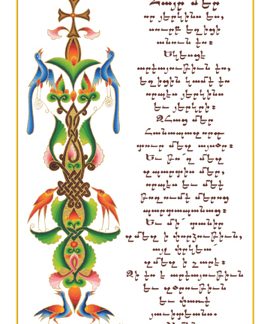 Հայր մեր
որ յերկինս ես,
սուրբ եղիցի
անուն քո։
Եկեսցէ
արքայութիւն քո,
եղիցին կամք քո
որպէս յերկինս
եւ յերկրի։
Զհաց մեր
հանապազորդ
տուր մեզ այսօր։
Եւ թող մեզ
զպարտիս մեր,
որպէս եւ մեք
թողումք մերոց
պարտապանաց։
Եւ մի՛ տանիր
զմեզ ի փորձութիւն,
այլ փրկեա
զմեզ ի չարէ։
Զի քո է արքայութիւն
եւ զօրութիւն
եւ փառք
յաւիտեանս.